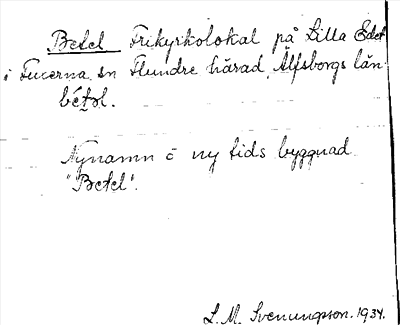 Betel Frikyrkolokal på Lilla Edet
i Fucerna sn Flundre härad, Älfsborgs län.
bétəl.
Nynamn å ny tids byggnad
"Betel".
L. M. Svenungsson. 1934.